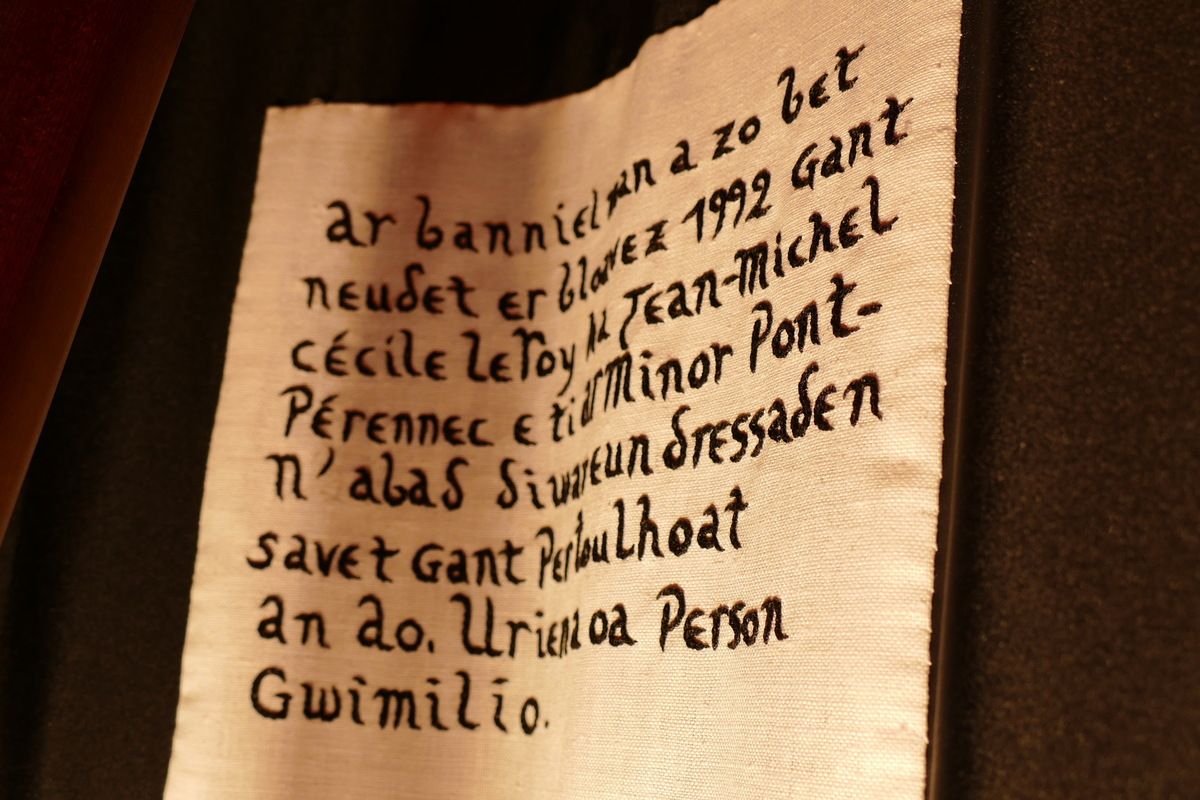 ar banniel man a zo bet
neudet er bloavez 1992 Gant
cécile Leroy ha Jean-Michel
Pérennec e ti ar Minor Pont-
n'abad diwar eun dressaden
savet Gant Per Toulhoat
an ao. Urien a oa Person
Gwimilio.